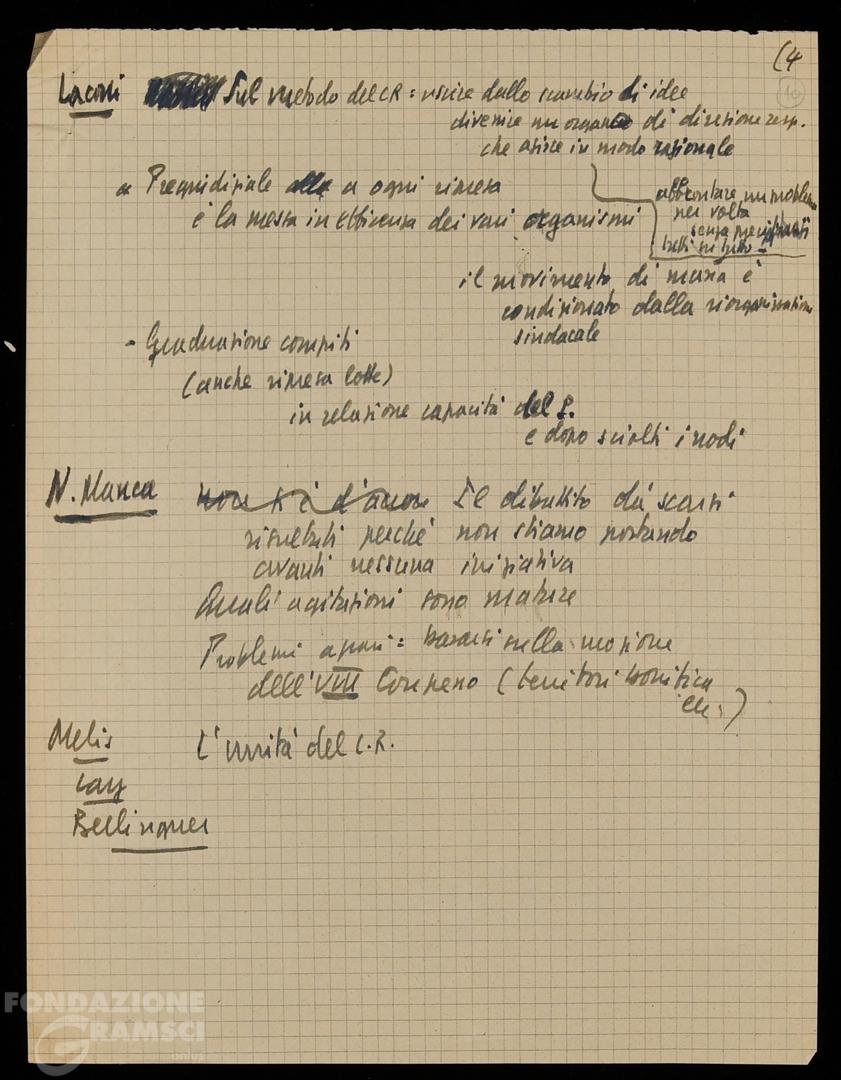 (4
10
Laconi Sul metodo del CR = uscire dallo scambio di idee
divenire un organo di direzione resp.
che agisce in modo razionale
affrontare un problema
per volta
senza
tutti su tutto -
Pregiudiziale a ogni ripresa
è la messa in efficienza dei vari organismi
il movimento di massa è
condizionato dalla riorganizzazione
sindacale
- Graduazione compiti
(anche ripresa lotte)
in relazione capacità del P.
e dopo sciolti i nodi
N. Manca non si è d'accordo Il dibattito dà scarsi
risultati perché non stiamo portando
avanti nessuna iniziativa
Quali agitazioni sono mature
Problemi agrari = basarsi sulla mozione
dell'VIII Congresso (territori bonifica
ecc.)
Melis L'unità del C.R.
Lay
Berlinguer
FONDAZIONE
GRAMSCI
onlus